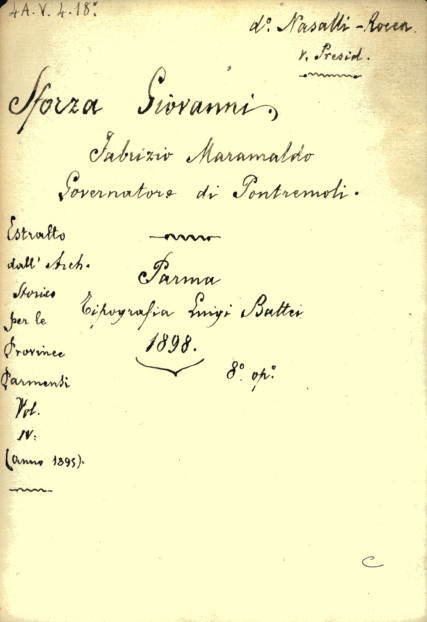 4A.V.4.18°
d°. Nasalli-Rocca.
V. Presid.
Sforza Giovanni,
Fabrizio Maramaldo
Governatore di Pontremoli.
Estratto
dall' Arch.
Storico
per le
Province
Parmensi
Vol.
IV.
(anno 1895).
Parma
Tipografia Luigi Battei
1898.
8° op°.
C